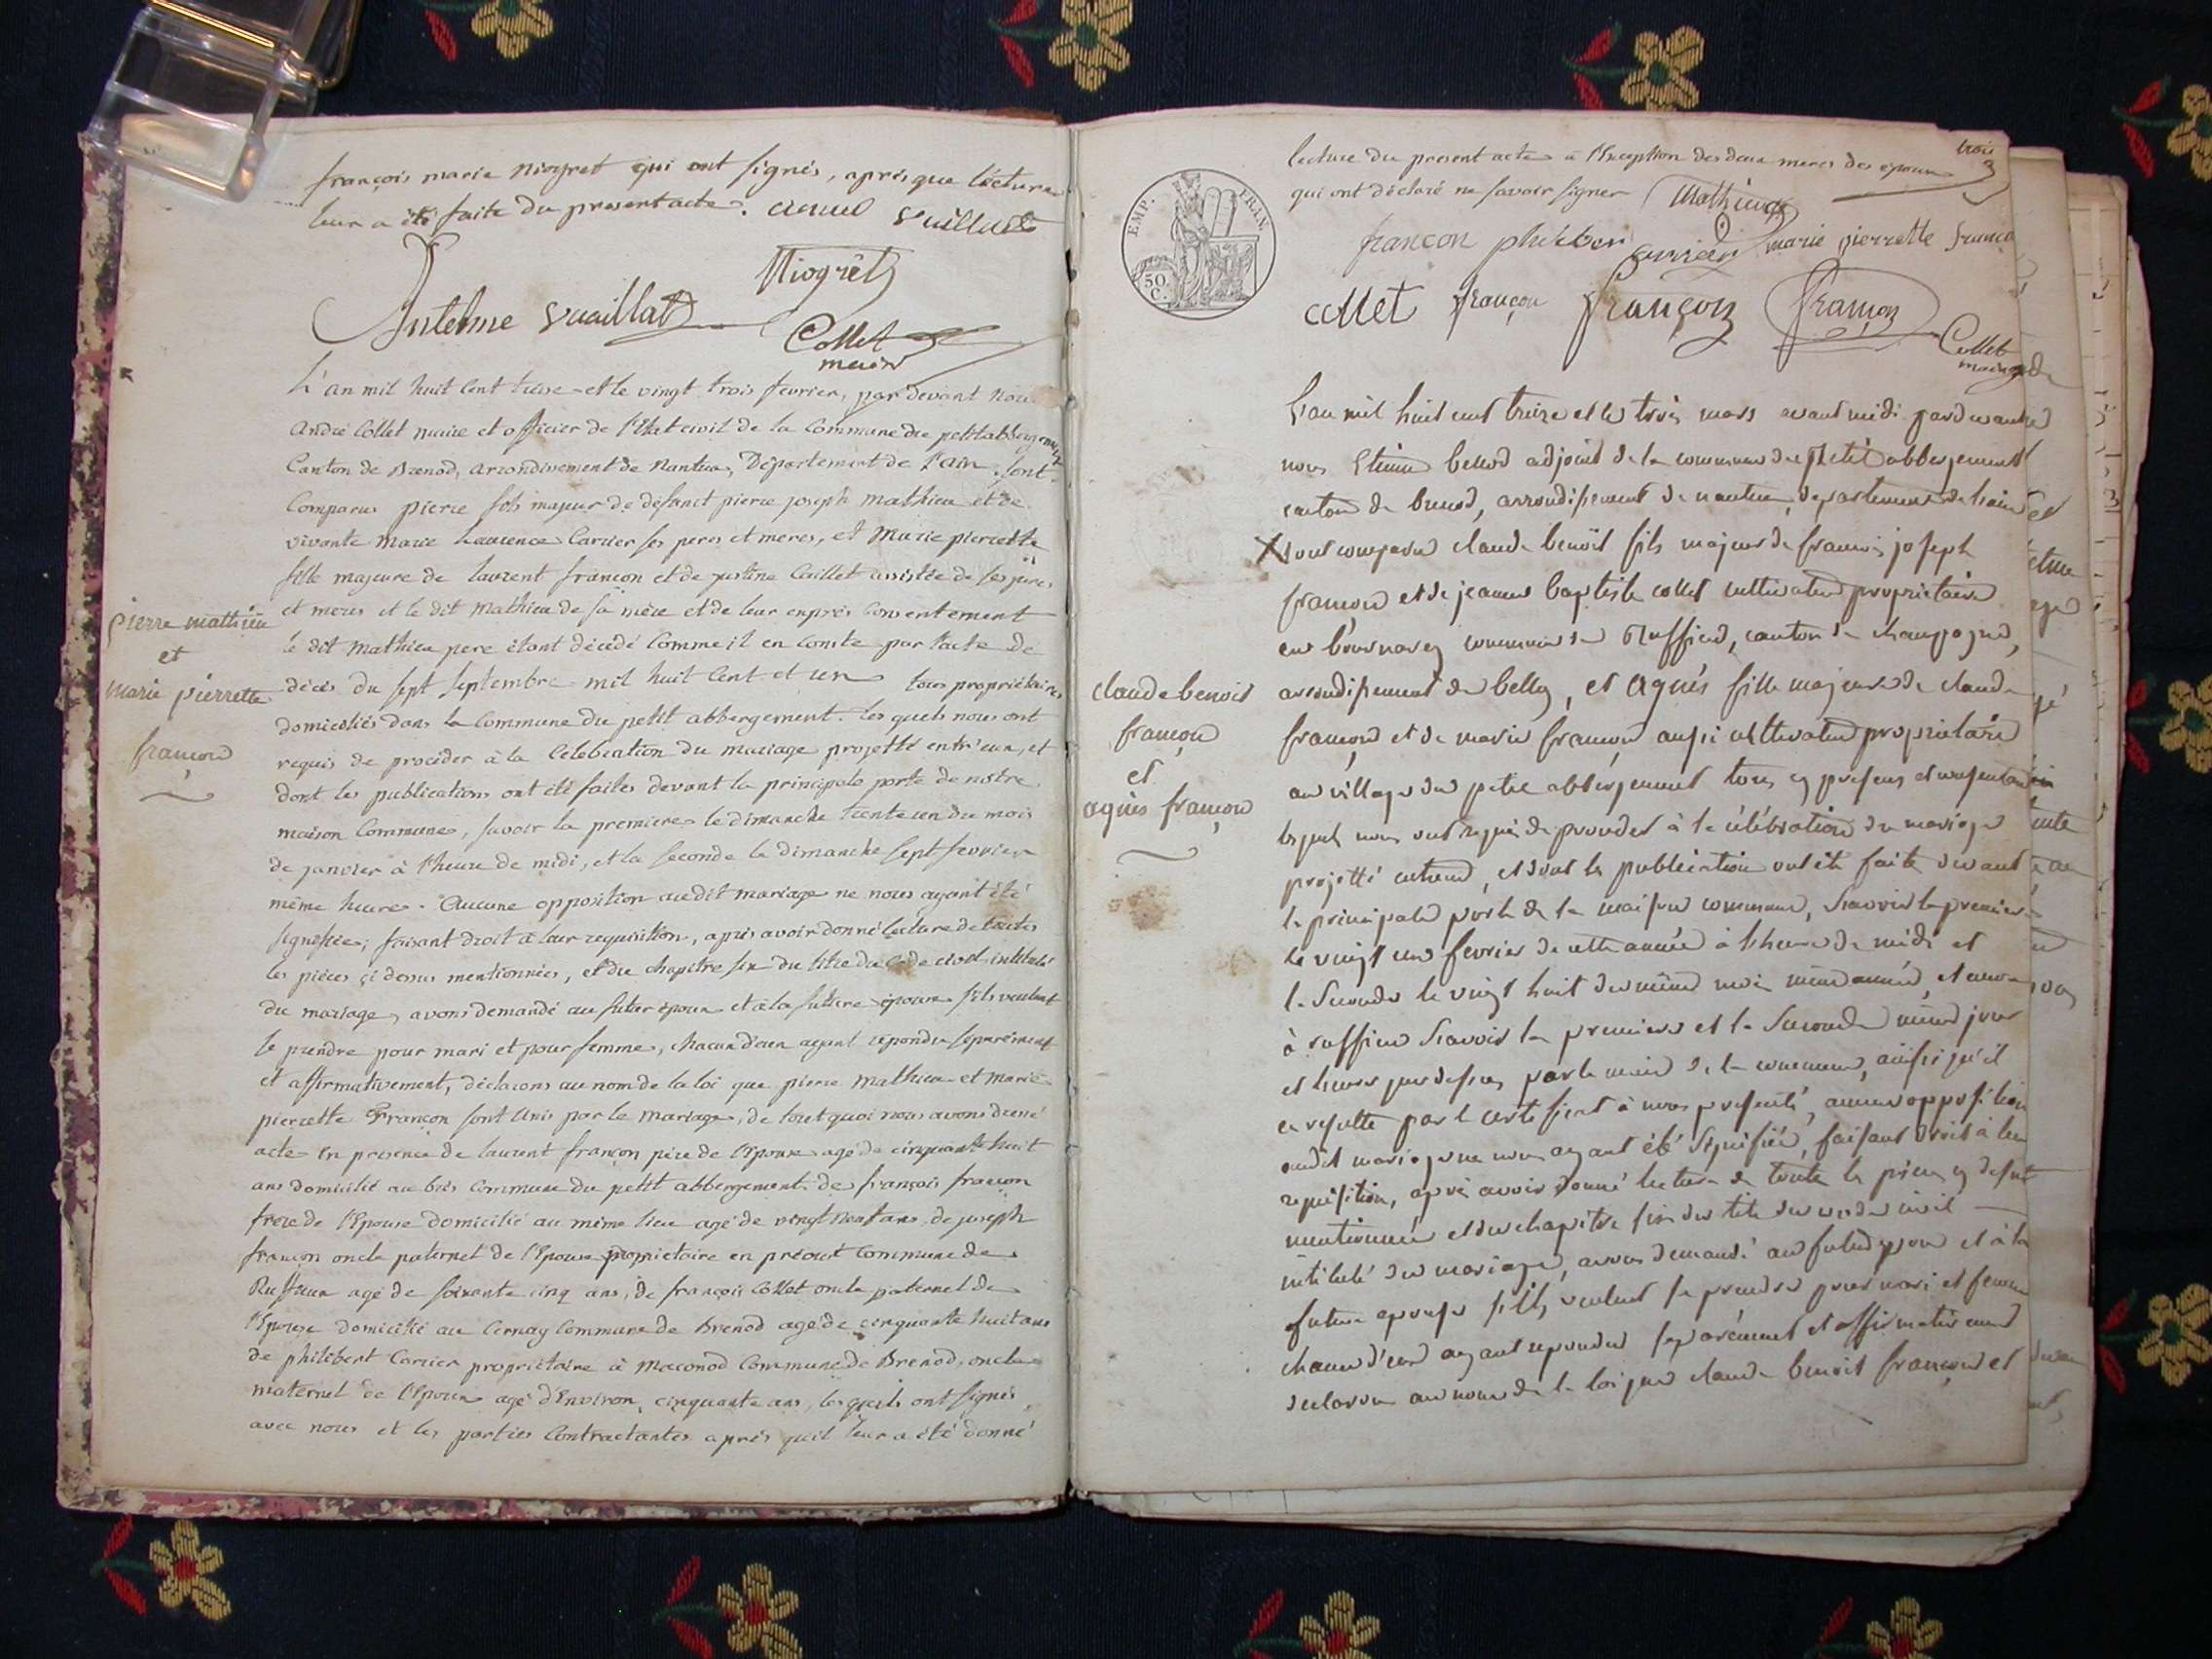 françois marie Niogret qui ont signés, après que lecture
leur a été faite du present acte.
Niogret
Antelme Vuaillat
Collet
maire
L'an mil huit cent treise et le vingt trois fevrier, par devant nous
André Collet maire et officier de l'Etat civil de la Commune du petit abbergement
Canton de Brenod, arrondissement de Nantua, Département de l'ain, sont
Comparus pierre fils majeur de defunct pierre joseph mathieu et de
vivante Marie Laurence Carrier ses peres et meres, et Marie pierrette
fille majeure de laurent françon et de justine Collet assistée de ses peres
et meres et le dit Mathieu de sa mère et de leur exprès Consentement
le dit Mathieu pere étant décédé Comme il en Conste par l'acte de
décès du sept septembre mil huit Cent et un tous propriétaires
domiciliés dans la Commune du petit abbergement. les quels nous ont
requis de procéder à la Celebration du mariage projetté entr'eux, et
dont les publications ont été faites devant la principale porte de notre
maison Commune, savoir la premiere le dimanche trente un du mois
de janvier à l'heure de midi, et la seconde le dimanche sept fevrier
même heure. Aucune opposition audit mariage ne nous ayant été
signifiée; faisant droit à leur requisition, après avoir donné lecture de toutes
les pièces çi dessus mentionnées, et du chapitre six du titre du Code civil intitulé
du mariage, avons demandé au futur époux et à la future épouse s'ils veulent
se prendre pour mari et pour femme, chacun d'eux ayant répondu séparément
et affirmativement, déclarons au nom de la loi que pierre Mathieu et Marie
pierrette Françon sont Unis par le mariage, de tout quoi nous avons dressé
acte en presence de laurent françon père de l'Epouse agé de cinquante huit
ans domicilié au bois Commune du petit abbergement de françois françon
frere de l'Epouse domicilié au même lieu agé de vingt neuf ans, de joseph
françon oncle paternel de l'Epouse propriétaire en Commune de
Ruffieux agé de soixante cinq ans, de françois Collet oncle paternel de
l'Epouse domicilié au Cernay Commune de Brenod agé de cinquante huit ans
de philibert Carrier propriétaire à Maconod Commune de Brenod, oncle
maternel de l'Epoux agé d'Environ cinquante ans, les quels ont signés
avec nous et les parties Contractantes après qu'il leur a été donné
pierre mathieu
et
marie pierrette
françon
trois
3
lecture du present acte à l'Exception des deux meres des epoux
qui ont déclaré ne savoir signer Mathieu
EMP. FRAN.
50
C.
françon carrier marie pierrette
collet françon françon françon
Collet
maire
L'an mil huit cent treize et le trois mars avant midi pardevant
nous Etienne adjoint de la commune du Petit abbergement
canton de brenod, arrondissement de nantua, departement de l'ain
sont comparu claude benoit fils majeur de françois joseph
françon et de jeanne baptiste collet cultivateur propriétaire
en commune de Ruffieu, canton de champagne,
arrondissement de belley, et Agnès fille majeure de claude
françon et de marie françon aussi cultivateur propriétaire
au village du petit abbergement tous cy presens et consentans
lesquels nous ont requis de proceder à la célébration du mariage
projetté entreux, et dont les publication ont été faite devant
la principale porte de la maison commune, scavoir la premiere
le vingt un fevrier de cette année à l'heure de midi et
la seconde le vingt huit du même mois même année, et encore
à ruffieu scavoir la premiere et la seconde même jour
et heure que dessus par le maire de la commune, ainsi qu'il
en resulte par le certificat à nous presenté, aucune opposition
audit mariage ne nous ayant été signifiée, faisant droit à leur
requisition, après avoir donné lecture de toute les pieces cy dessus
mentionnée et du chapitre six du titre du code civil
intitulé du mariage, avons demandé au futur epoux et à la
future epouse s'ils veulent se prendre pour mari et femme
chacun d'eux ayant repondu séparément et affirmativement
declarons au nom de la loi que claude benoit françon et
claude benoit
françon
et
agnès françon